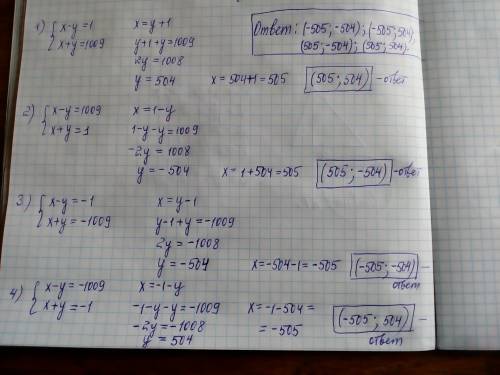 1) { x-y=1      x=y+1
x+y=1009      y+1+y=1009
2y=1008
y=504      x=504+1=505      (505; 504) -ответ
Ответ: (-505; -504); (-505; 504)
(505; -504); (505; 504).
2) { x-y=1009      x=1-y
x+y=1      1-y-y=1009
-2y=1008
y=-504      x=1+504=505      (505; -504) -ответ
3) { x-y=-1      x=y-1
x+y=-1009      y-1+y=-1009
2y=-1008
y=-504      x=-504-1=-505      (-505; -504) -
ответ
4) { x-y=-1009      x=-1-y
x+y=-1      -1-y-y=-1009      x=-1-504=
-2y=-1008      =-505      (-505; 504) -
y=504      ответ